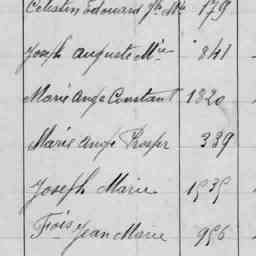 Célestin Edouard Jh Mie 179
Joseph Auguste Mie 841
Marie Ange Constant 1820
Marie Ange Prosper 339
Joseph Marie 1535
Fois Jean Marie 956